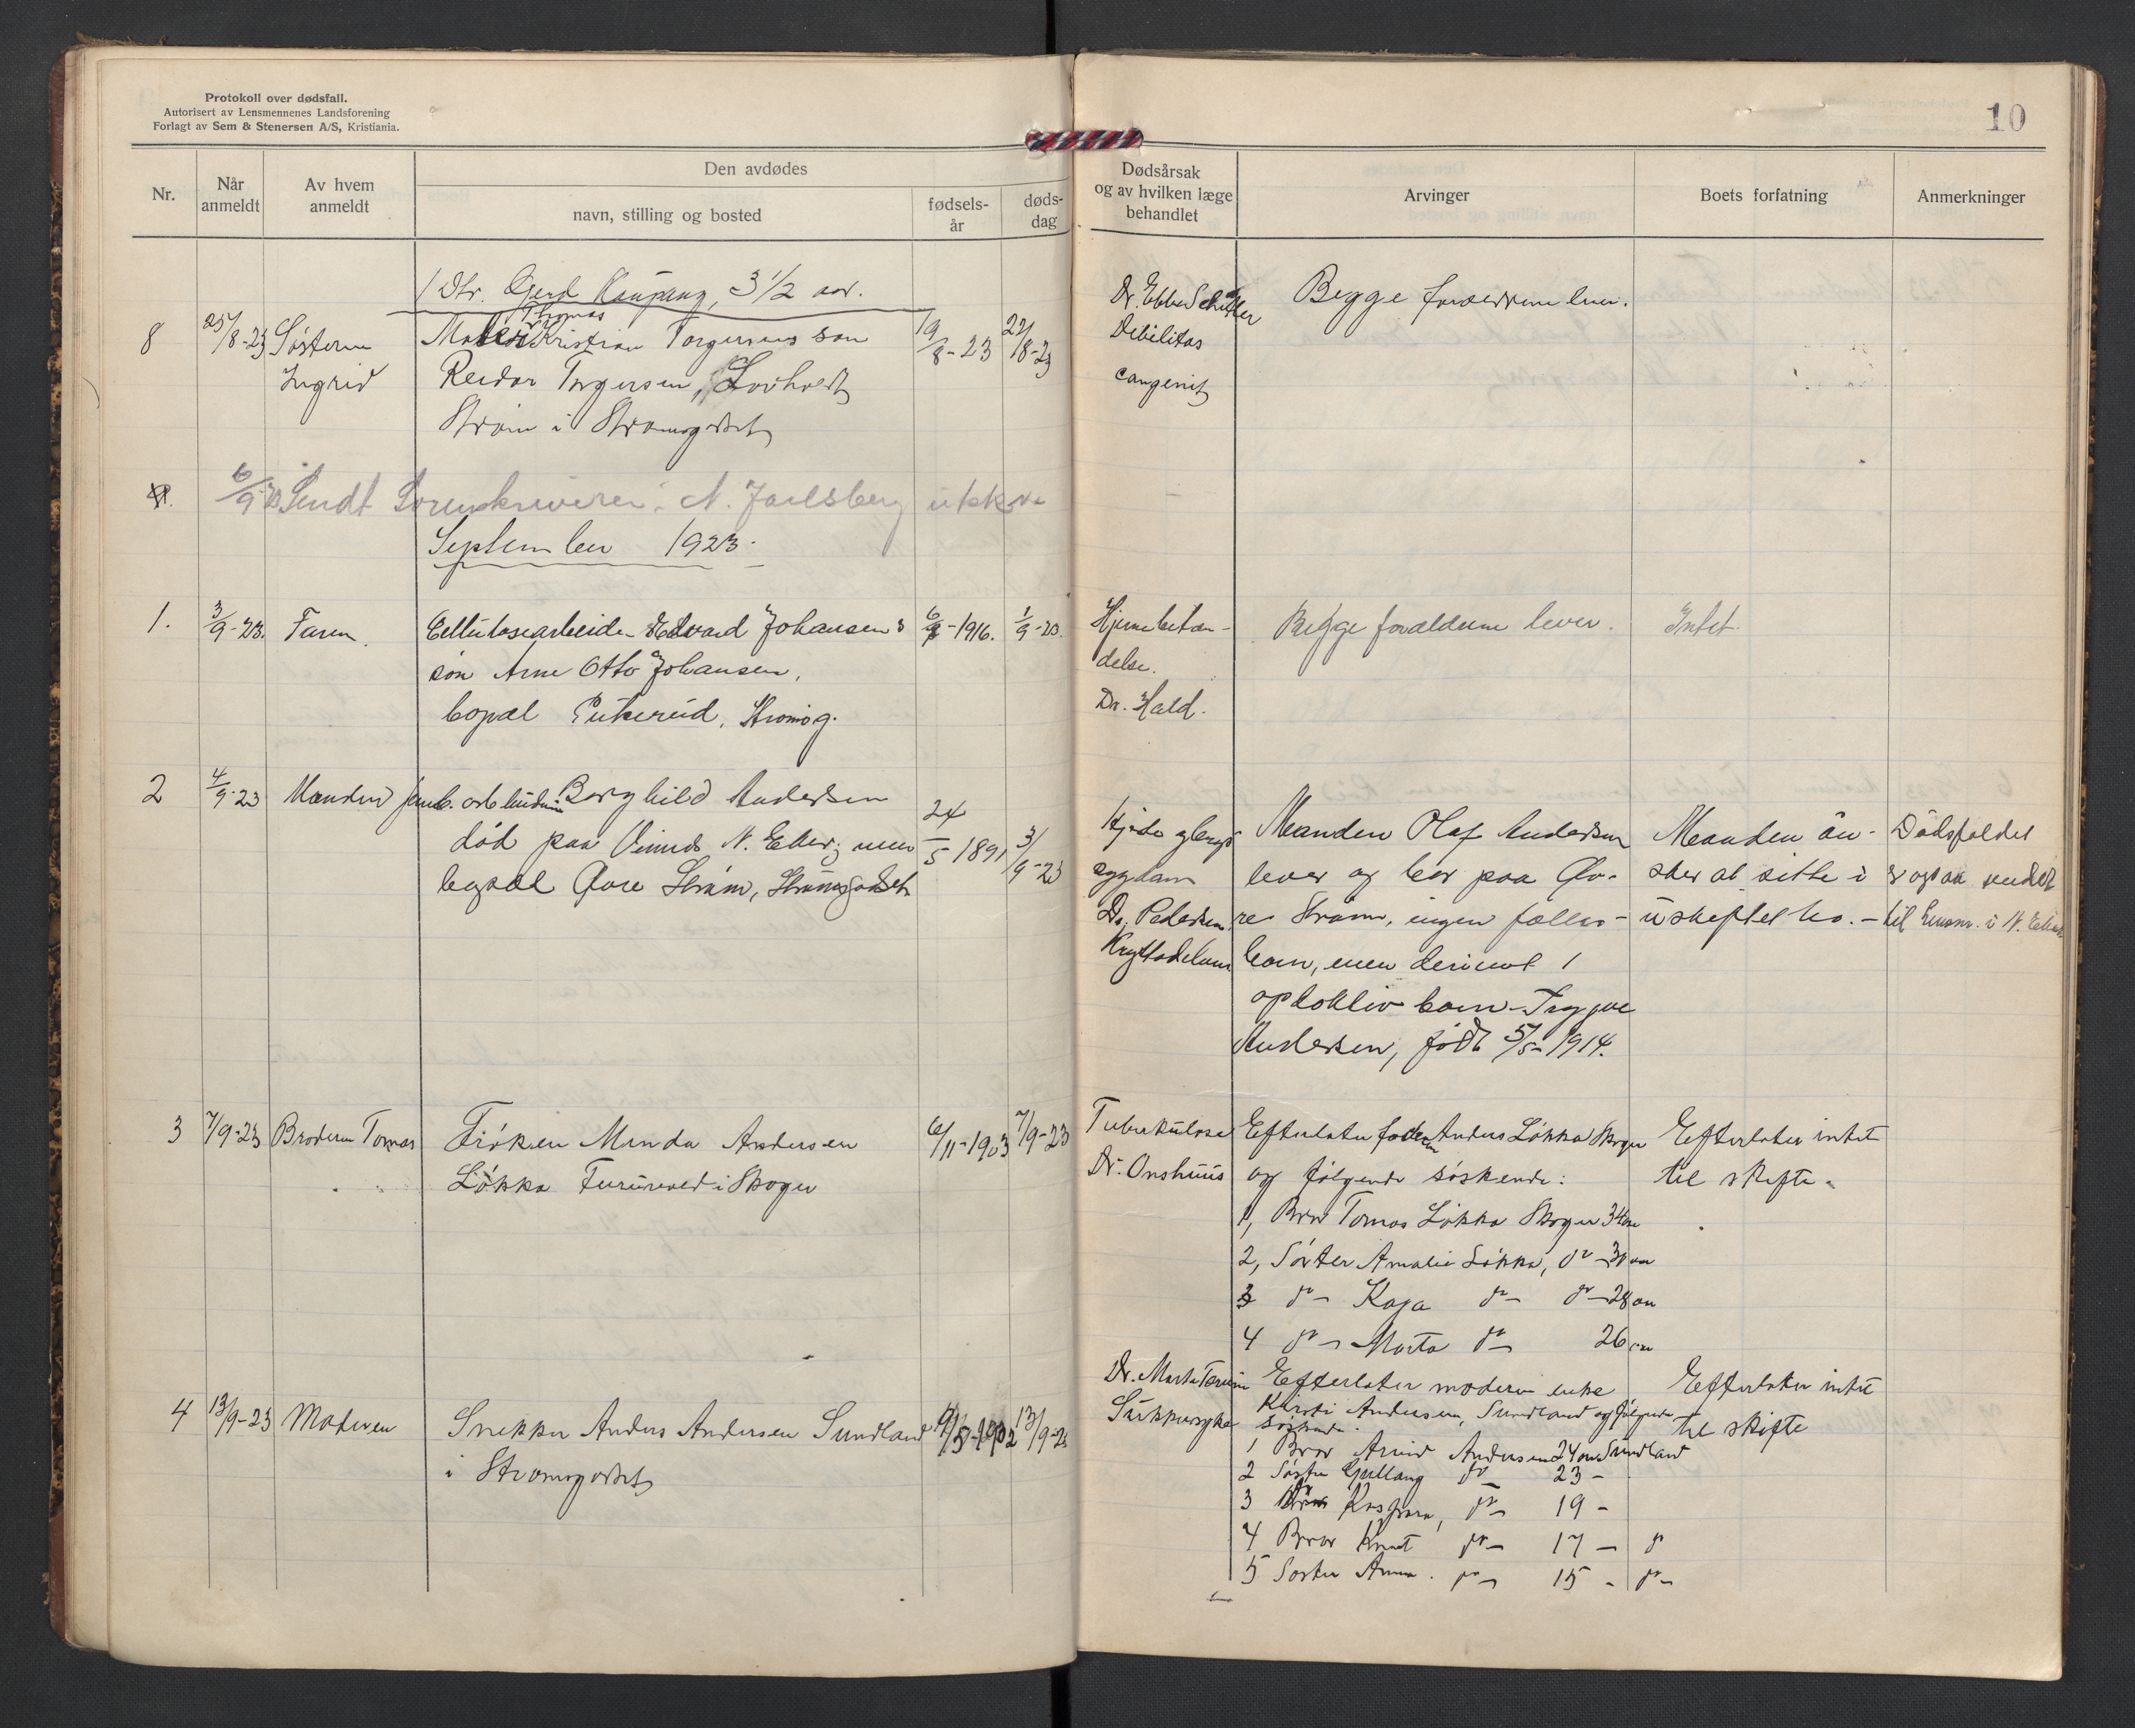 Protokoll over dødsfall.
Autorisert av Lensmennenes Landsforening
Forlagt av Sem & Stenersen A/S, Kristiania.
10
Nr.
Når anmeldt
Av hvem anmeldt
Den avdødes
navn, stilling og bosted
fødsels-år
døds-dag
Dødsårsak
og av hvilken læge
behandlet
Arvinger
Boets forfatning
Anmerkninger
1 Dtr. Gerd Kaupang, 3 1/2 aar.
8 25/8-23 Søsteren
Ingrid
Thomas
Kristian Torgersens søn
Reidar Torgersen,
Strøm i Strømsgodset
19/8-23 22/8-23
Debilitas
congenit
Begge forældrene lever.
6/9-23 Sendt Sorenskriveren i N. Jarlsberg
September 1923.
1. 3/9-23. Faren.
Cellulosearbeider Edvard Johansens
søn Arne Otto Johansen,
bopæl Pukerud, Strømsg.
6/ -1916. 1/9-23.
Hjernebetæn-
delse.
Dr. Hald.
Begge forældrene lever.
Intet.
2 4/9-23 Manden
Borghild Andersen
død paa N. Eker, men
bopæl Øvre Strøm, Strømsgodset
24/5 1891 3/9-23
Hjerte og lunge
sygdom
Dr. Pedersen
Manden Olaf Andersen
lever og bor paa Øv-
re Strøm, ingen fælles-
barn, men derimot 1
barn Trygve
Andersen, født 5/5-1914.
Manden øn-
sker at sitte i
uskiftet bo. -
Dødsfaldet
er ogsaa meldt
til lensm. i N. Eker
3 7/9-23 Broderen Tomas
Frøken Minda Andersen
Løkka i Skoger
6/11-1903 7/9-23
Tuberkulose
Dr. Onshuus
Efterlater faderen Anders Løkka Skoger
og følgende søskende:
1, Bror Tomas Løkka Skoger 34 aar
2, Søster Amalie Løkka, do - 30 aar
3 do - Kaja do - do - 28 aar
4 do - Marta do - 26 aar
Efterlater intet
til skifte.
4 13/9-23 Moderen
Snekker Anders Andersen Sundland
i Strømsgodset
13/9-23
Dr. Marta
Sukkersyke
Efterlater moderen enke
Kirsti Andersen, Sundland og følgende
søskende.
1 Bror Arvid Andersen 24 aar Sundland
2 Søster do - 23 -
3 do Kaspara, do - 19 -
4 Bror Knut do - 17 - do
5 Søster Anna. do - 15 - do -
Efterlater intet
til skifte